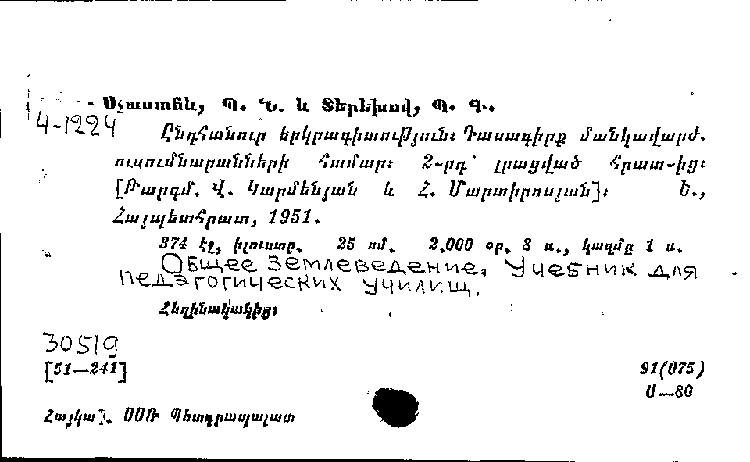 Սչաստնև, Պ. Ն. և Տերեխով, Պ. Գ.
4-1224
Ընդհանուր երկրագիտություն։ Դասագիրք մանկավարժ.
ուսումնարանների համար։ 2-րդ՝ լրացված հրատ-ից։
[Թարգմ. Վ. Կարմենյան և Հ. Մարտիրոսյան]։ Ե.,
Հայպետհրատ, 1951.
374 էջ, իլուստր. 25 սմ. 2.000 օր. 8 ռ., կազմը 1 ռ.
Общее землеведение. Учебник для
педагогических училищ.
Հեղինակակից։
30519
[51—241]
91(075)
Ս—80
Հայկակ. ՍՍՌ Պետգրապալատ